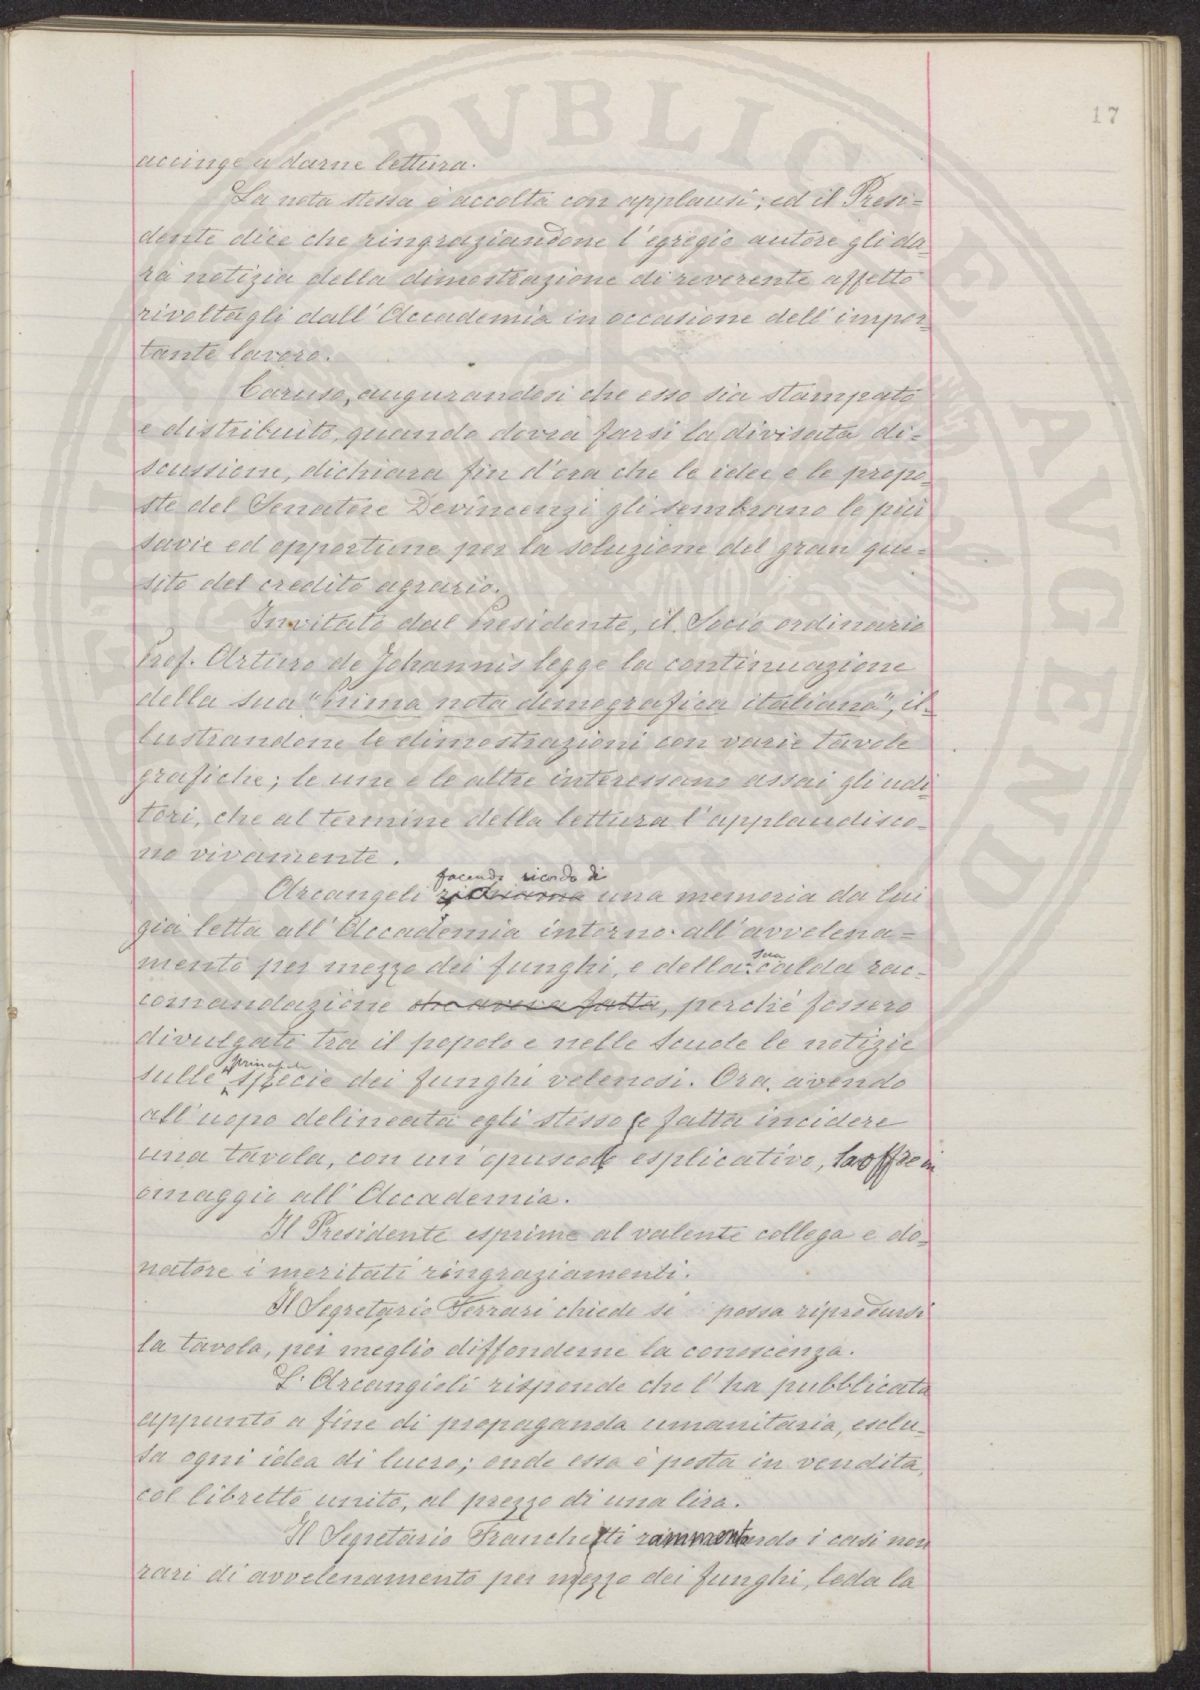 17
accinge a darne lettura.
La nota stessa è accolta con applausi; ed il Presi=
dente dice che ringraziandone l'egregio autore gli da=
rà notizia della dimostrazione di reverente affetto
rivoltagli dall'Accademia in occasione dell'impor=
tante lavoro.
Caruso, augurandosi che esso sia stampato
e distribuito, quando dovrà farsi la divisata di=
scussione, dichiara fin d'ora che le idee e le propo=
ste del Senatore Devincenzi gli sembrano le più
savie ed opportune per la soluzione del gran que=
sito del credito agrario.
Invitato dal Presidente, il Socio ordinario
Prof. Arturo de Johannis legge la continuazione
della sua "Prima nota demografica italiana", il=
lustrandone le dimostrazioni con varie tavole
grafiche; le une e le altre interessano assai gli udi=
tori, che al termine della lettura l'applaudisco=
no vivamente.
facendo ricordo di
Arcangeli richiama una memoria da lui
già letta all'Accademia intorno all'avvelena=
sua
mento per mezzo dei funghi, e della calda rac=
comandazione che aveva fatta, perché fossero
divulgate tra il popolo e nelle scuole le notizie
principali
sulle specie dei funghi velenosi. Ora, avendo
all'uopo delineata egli stesso e fatta incidere
una tavola, con un opuscolo esplicativo, la offre in
omaggio all'Accademia.
Il Presidente esprime al valente collega e do=
natore i meritati ringraziamenti.
Il Segretario Ferrari chiede se possa riprodursi
la tavola, per meglio diffonderne la conoscenza.
L'Arcangieli risponde che l'ha pubblicata
appunto a fine di propaganda umanitaria, esclu=
sa ogni idea di lucro; onde essa è posta in vendita,
col libretto unito, al prezzo di una lira.
Il Segretario Franchetti rammentando i casi non
rari di avvelenamento per mezzo dei funghi, loda la
PVBLICAE
AVGENDA